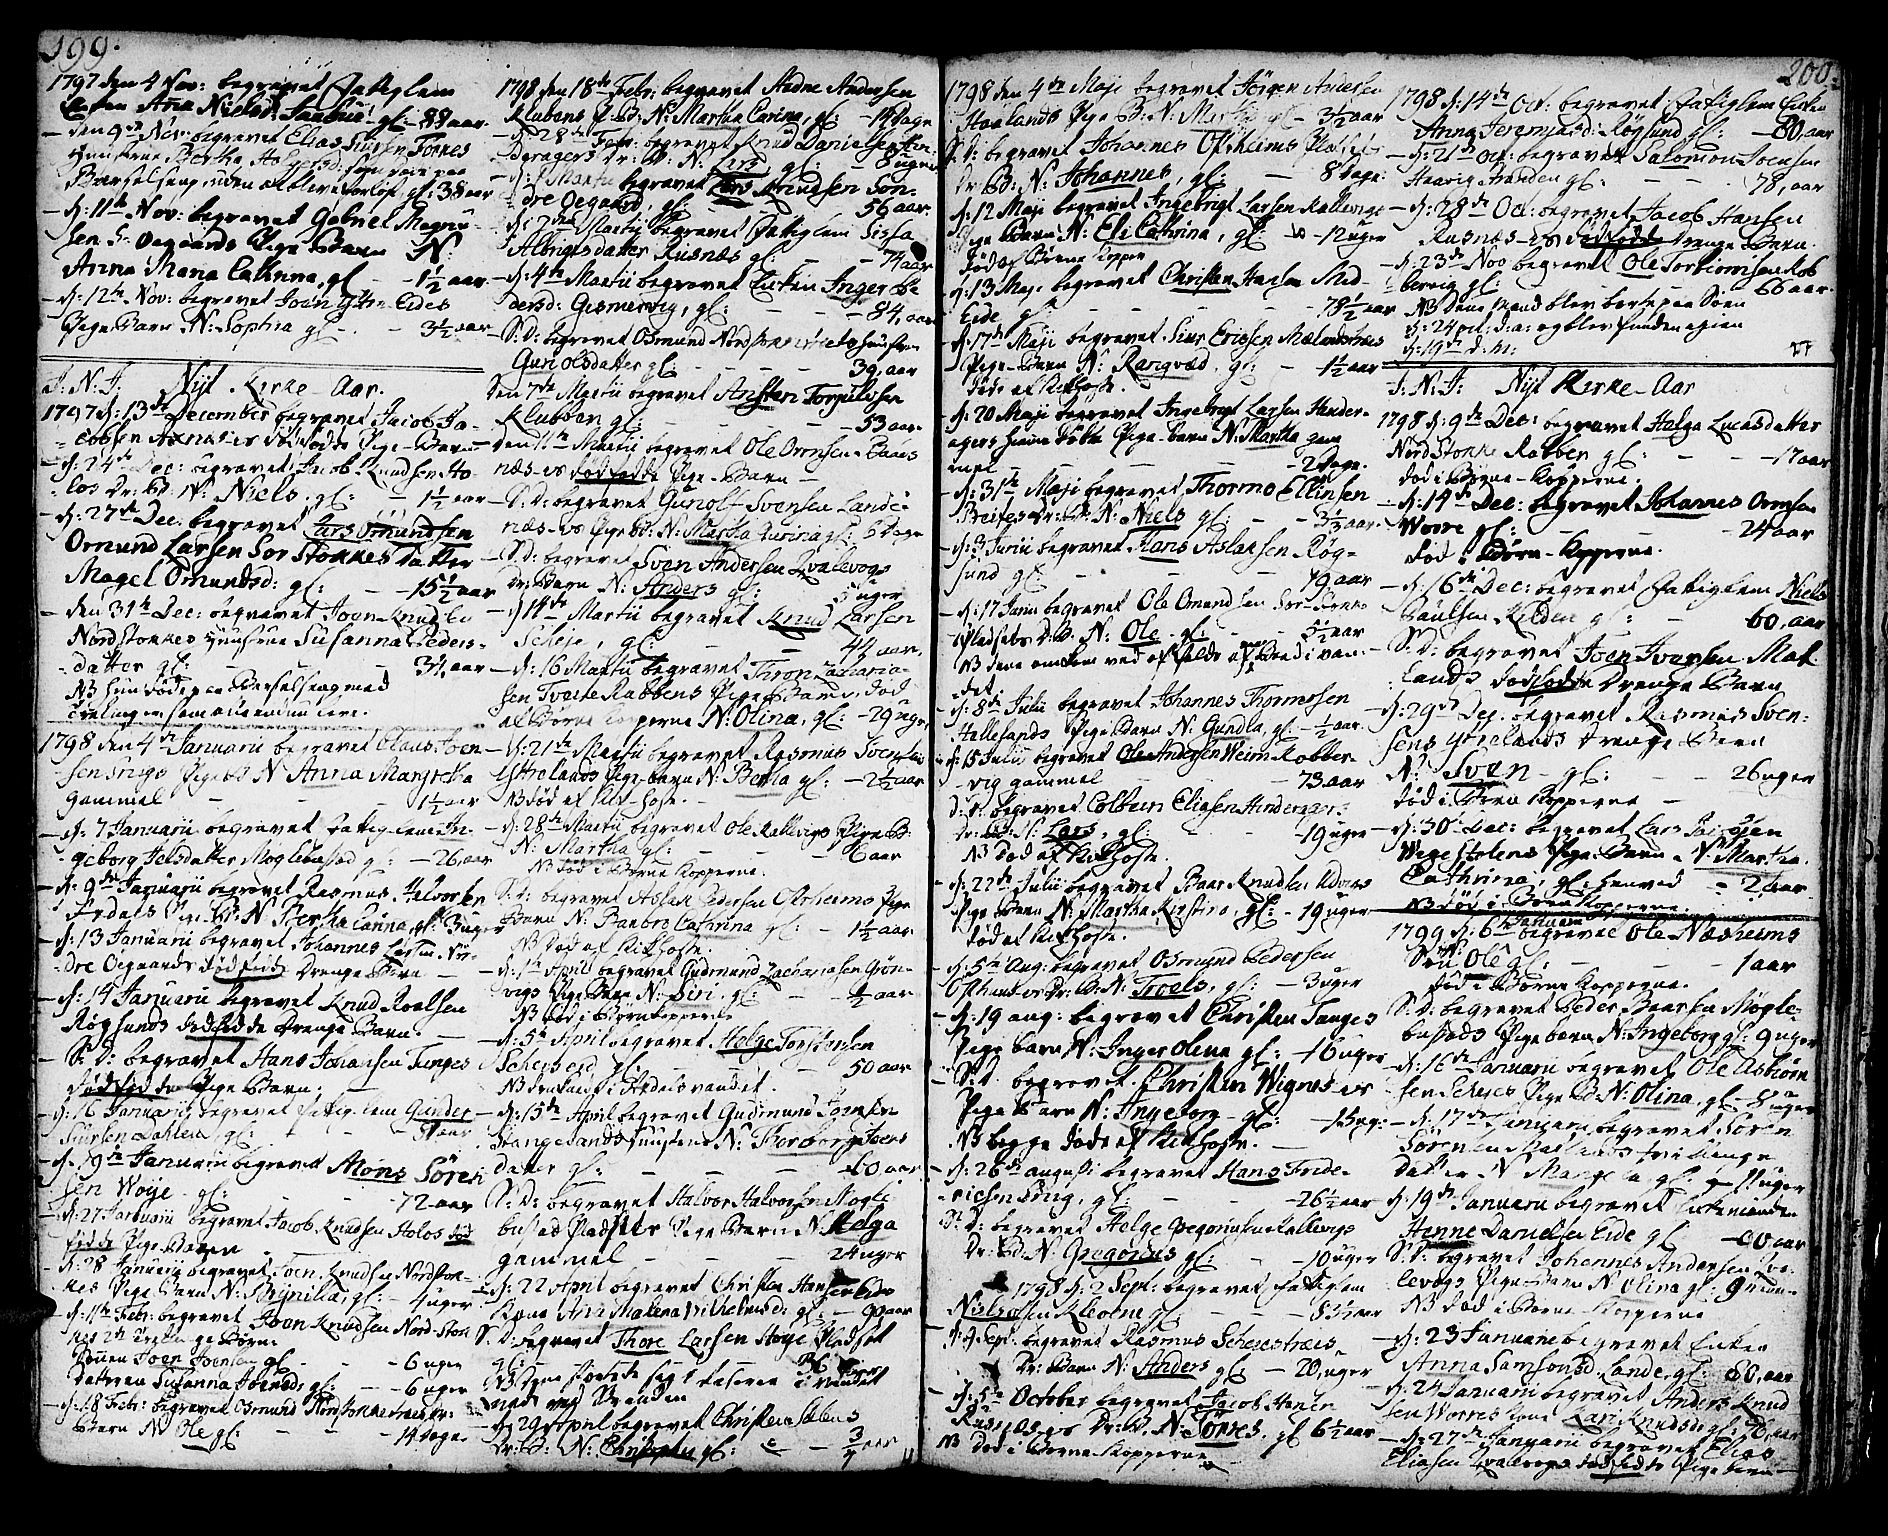 199.
1797 den 4 Nov: begravet Fattiglem
Enken Anna Nielsd: gl: 88 aar.
den 9de Nov: begravet Elias Tørres
Hustrue Bertha som døde paa
Barselseng uden at blive forløst, gl: 38 aar
d: 11te Nov: begravet Gabriel Magnu-
sen S. Oegaards Pige Barn N:
Anna Maria Cathrina, gl - 1½ aar
d: 12te Nov: begravet Eides
Pige Barn N: Sophia gl - 3½ aar
I: N: I: Nyt Kirke-Aar.
1797 d: 13de December begravet Jacob Ja-
cobsen dødfødte Pige-Barn
d: 24de Dec: begravet Jacob Knudsen Ho-
los Dr: B: N: Niels, gl: - 1½ aar
d: 27de Dec: begravet Lars Omundsen
Omund Larsen Sør Stokkes Datter
Magel Omundsd: gl: - 15½ aar
den 31te Dec: begravet Joen Knudsen
Nordstokkes Hustrue Susanna Peders-
datter gl: aar
NB hun døde paa Barselseng med
1798 den 4de Januarii begravet Claus Joen-
sen Pige B: N Anna Margretha
gammel - - 1½ aar
d: 7 Januarii begravet Fattiglem In-
geborg Møglebustad gl: - 26 aar
d: 9de Januarii begravet Rasmus Halvorsen
Årdals Pige B: N Bertha Carina, gl: 3 uger
d: 13 Januarii begravet Johannes Larsen Nør-
dre Oegaards dødfødte Drenge Barn
d: 14 Januarii begravet Knud Roalsen
Røgsunds dødfødde Drenge Barn.
S: D: begravet Hans Johansen Tunges
dødfødde Pige Barn.
d: 16 Januarii begravet Fattiglem Gunder
Siursen Dahlen, gl: aar
d: 19de Januarii begravet Mons Søren-
sen Woje gl: - - 72 aar
d: 27 Januarii begravet Jacob Knudsen Holos død
fødde Pige Barn
d: 28 Januarii begravet Joen Knudsen Nordstok-
kes Pige Barn N: gl: - 4 uger
d: 11te Febr: begravet Joen Knudsen Nord-Stok-
kes 2de Børn
Sønnen Joen Joensen gl - - 6 uger
datteren Susanna Joensd: gl: - 6 uger
d: 18 Febr: begravet Osmund
Barn N Ole gl: - 14 dage
1798 den 18de Febr: begravet Andersen
Klubens P: B: N: Martha Carina, gl: - 14 dage
d: 28de Febr: begravet Knud Danielsen Hin-
deragers Dr: B: N: Lars gl: - 8 uger
d: Martii begravet Lars Iringsen Søn-
dre Oegaard, gl: - 56 aar.
d: 2den Martii begravet Fattiglem Sissa
Albrigtsdatter Rusnæs gl: - 74 aar
d: 4de Martii begravet Enken Inger Pe
dersd: Gismervig, gl: - - 84, aar
S: D: begravet Osmund Nordstrannets Hustrue
Guri Olsdatter gl: - - 39, aar
den 7de Martii begravet Torgulvsen
Klubben gl: - - 53 aar.
den 11te Martii begravet Ole Ormsen
næs-es dødfødde Pige-Barn -
S: D: begravet Gunolf Svensen Lande-
næs-es Pige B: N: Martha Gurina gl: 6 dage
S: D: begravet Sven Andersen Kvalevogs
Dr: Barn N: Anders gl: 5 uger
d: 14de Martii begravet Knud Larsen
Scheje, gl: - - 44 aar,
d: 16 Martii begravet Thron Zacharia-
sen Tveite Rabbens Pige Barn, død
af Børne Kopperne N: Olina, gl: - 29 uger,
d: 21de Martii begravet Rasmus Svensen
Ystrelands Pige-barn N: Bertha gl: - 2½ aar
NB død af Kik-hoste. -
d: 28de Martii begravet Ole Kallevigs Pige B:
N: Martha gl: - - 6 aar
NB død i Børne Kopperne.
S: D: begravet Aslak Pedersen Olfsheims Pige
Barn N: Barbro Cathrina gl: - 1½ aar
NB død af Kikhoste.
d: 1te April begravet Gudmund Zachariasen Grøn-
vigs Pige Barn N: Siri, gl: - ½ aar
NB død i Børnekopperne
d: 5te April begravet Helge Torstensen
gl: - 50 aar
NB druknet i Årdalsvandet.
d: 15de April begravet Gudmund Joensen
Stangelands Hustrue N: Thorborg Joens
Datter gl: - - 60 aar
S: D: begravet Halvor Halvorsen Møgle
bustad Pladsets Pige Barn N: Helga
gammel - - 24 uger
d: 22 April begravet Christen Hansen Eide
Kone Anna Malena Vilhelmsd: gl: - 90 aar
S: D: begravet Thore Larsen Høye Pladset
gl: 36 aar
NB denne i vandet
d: 29 April begravet Christen
Dr: B: N: Christen gl: - ¾ aar
1798 den 4de Maji begravet Jørgen
Haalands Pige B: N: Martha gl: - 3½ aar
S: D: begravet Johannes Olfsheims Pladset
Dr: B: N: Johannes, gl: - 8 dage.
d: 12 Maji begravet Ingebrigt Larsen Kallevigs
Pige Barn N: Eli Cathrina, gl: - 12 uger
død af Børne Kopper
d: 13 Maji begravet Christen Hansen Med-
Eide gl - - 78½ aar
d: 17de Maji begravet Siur Ericsen Mælandsnes
Pige-Barn N: Rangvæd, gl: - 1½ aar
død af Kikhoste.
d: 20 Maji begravet Ingebrigt Larsen Hinder-
agers hiemme døbte Pige-Barn N: Martha gam
mel - - 2 dage.
d: 31te Maji begravet Thormo Ellinsen
Breifes Dr: B: N: Niels gl: - 3⅓ aar.
d: 3 Junii begravet Hans Aslaksen Røg-
sund gl: - - 79 aar
d: 17 Junii begravet Ole Omundsen Sør-Stokke
Pladsets Dr: B. N: Ole gl: - 5½ aar
NB denne omkom ved at falde af Bred i van-
det.
d: 8de Julii begravet Johannes Thormosen
Hallesands Pige Barn N: Gundla, gl: - ½ aar.
d: 15 Julii begravet Ole Andersen Weim Kobber-
vig gammel - 73 aar
S: D: begravet Colbein Eliasen Hinderager
Dr: B: N: Lars, gl: - 19 uger
NB død af Kikhoste.
d: 22de Julii begravet Baar Knudsen Udvigs
Pige Barn N: Martha Kirstina gl: - 19 uger
død af Kikhoste.
d: 5te Aug: begravet Osmund Pedersen
Dr: B: N: Troels, gl: - 3 uger
d: 19 aug: begravet Christen Tunges
Pige barn N: Inger Olena gl: - 16 uger
S: D. begravet Christen Wignes-es
Pige Barn N: Ingeborg gl: - 15 ug:
NB begge døde af Kikhoste.
d: 26de augusti begravet Hans Fride-
ricsen gl: - 26½ aar
S: D: begravet Helge Gregoriusen Kallevigs
Dr: B: N: Gregorius gl: - 10 uger
1798 d: 2 Sept: begravet Fattiglem
Niels Olsen gl: - 8½ aar
d: 9 Sept: begravet Rasmus
Dr: Barn N: Anders gl - 20, uger
d: 5te October begravet Jacob Hansen
Rusnæs-es Dr: B. N: Tørres, gl 6½ aar
NB død i Børne Kopperne
200.
1798 d: 14de Oct: begravet Fattiglem Enken
Anna Jeremiasd: Røgsund gl: - 80, aar
d: 21de Oct: begravet Salomon Joensen
Haavig Stranden gl: - - 78, aar
d: 28de Oct: begravet Jacob Hansen
Rusnæs-es dødfødde Drenge Barn.
d: 23de Nov begravet Ole Torbiørnsen Kob
bervig gl: - - 66 aar.
NB denne Mand blev borte paa Søen
d: 24 oct: d: a: og blev funden igien
d: 19de d: m:
I: N: I: Nyt Kirke-Aar
1798 d: 9de Dec: begravet Helga Lucasdatter
Nord Stokke Rabben gl: - 17 aar
død i Børne-Kopperne.
d: 14de Dec: begravet Johannes Ormsen
Worre gl: - 24 aar
død i Børne-Kopperne.
d: 16de Dec: begravet Fattiglem Niels
Paulsen Kilden gl: - 60, aar
S: D: begravet Joen Iversen Mæ-
lands dødfødte Drenge Barn
d: 29de Dec: begravet Rasmus Sven-
sens Ystrelands Drenge-Barn
N: Sven - gl: - 26 uger
død i Børne Kopperne -
d: 30te Dec: begravet Lars
Pige-Barn N: Martha
Cathrina, gl: henved - 2 aar
NB død i Børne Kopperne.
1799 d: 6te Januarii begravet Ole Næsheims
Søn Ole gl: - - 1 aar
død i Børne Kopperne.
S: D: begravet Peder Baarsen Møgle-
bustads Pige barn N: Ingeborg gl: 9 uger
d: 16de Januarii begravet Ole Asbiørn
sen Schejes Pige B: N: Olina, gl - 8 uger
d: 17de Januarii begravet Søren
Sørensen Mælands
Datter N Margeta, gl - 11 uger
d: 19de Januarii begravet Enkemanden
Henne Danielsen Eide gl - 60 aar
S: D: begravet Johannes Andersen Kva-
levogs Pige-Barn N Olina gl: 9
NB død i Børne-Kopperne
d: 23 Januarii begravet Enken
Anna Samsonsd: Lande, gl: 80, aar
d: 24 Januarii begravet Anders Knud
sen Worres kone Kari Knudsd: gl: aar
d: 27de Januarii begravet Elias
Eliasen Kvalevogs dødfødte Pige barn